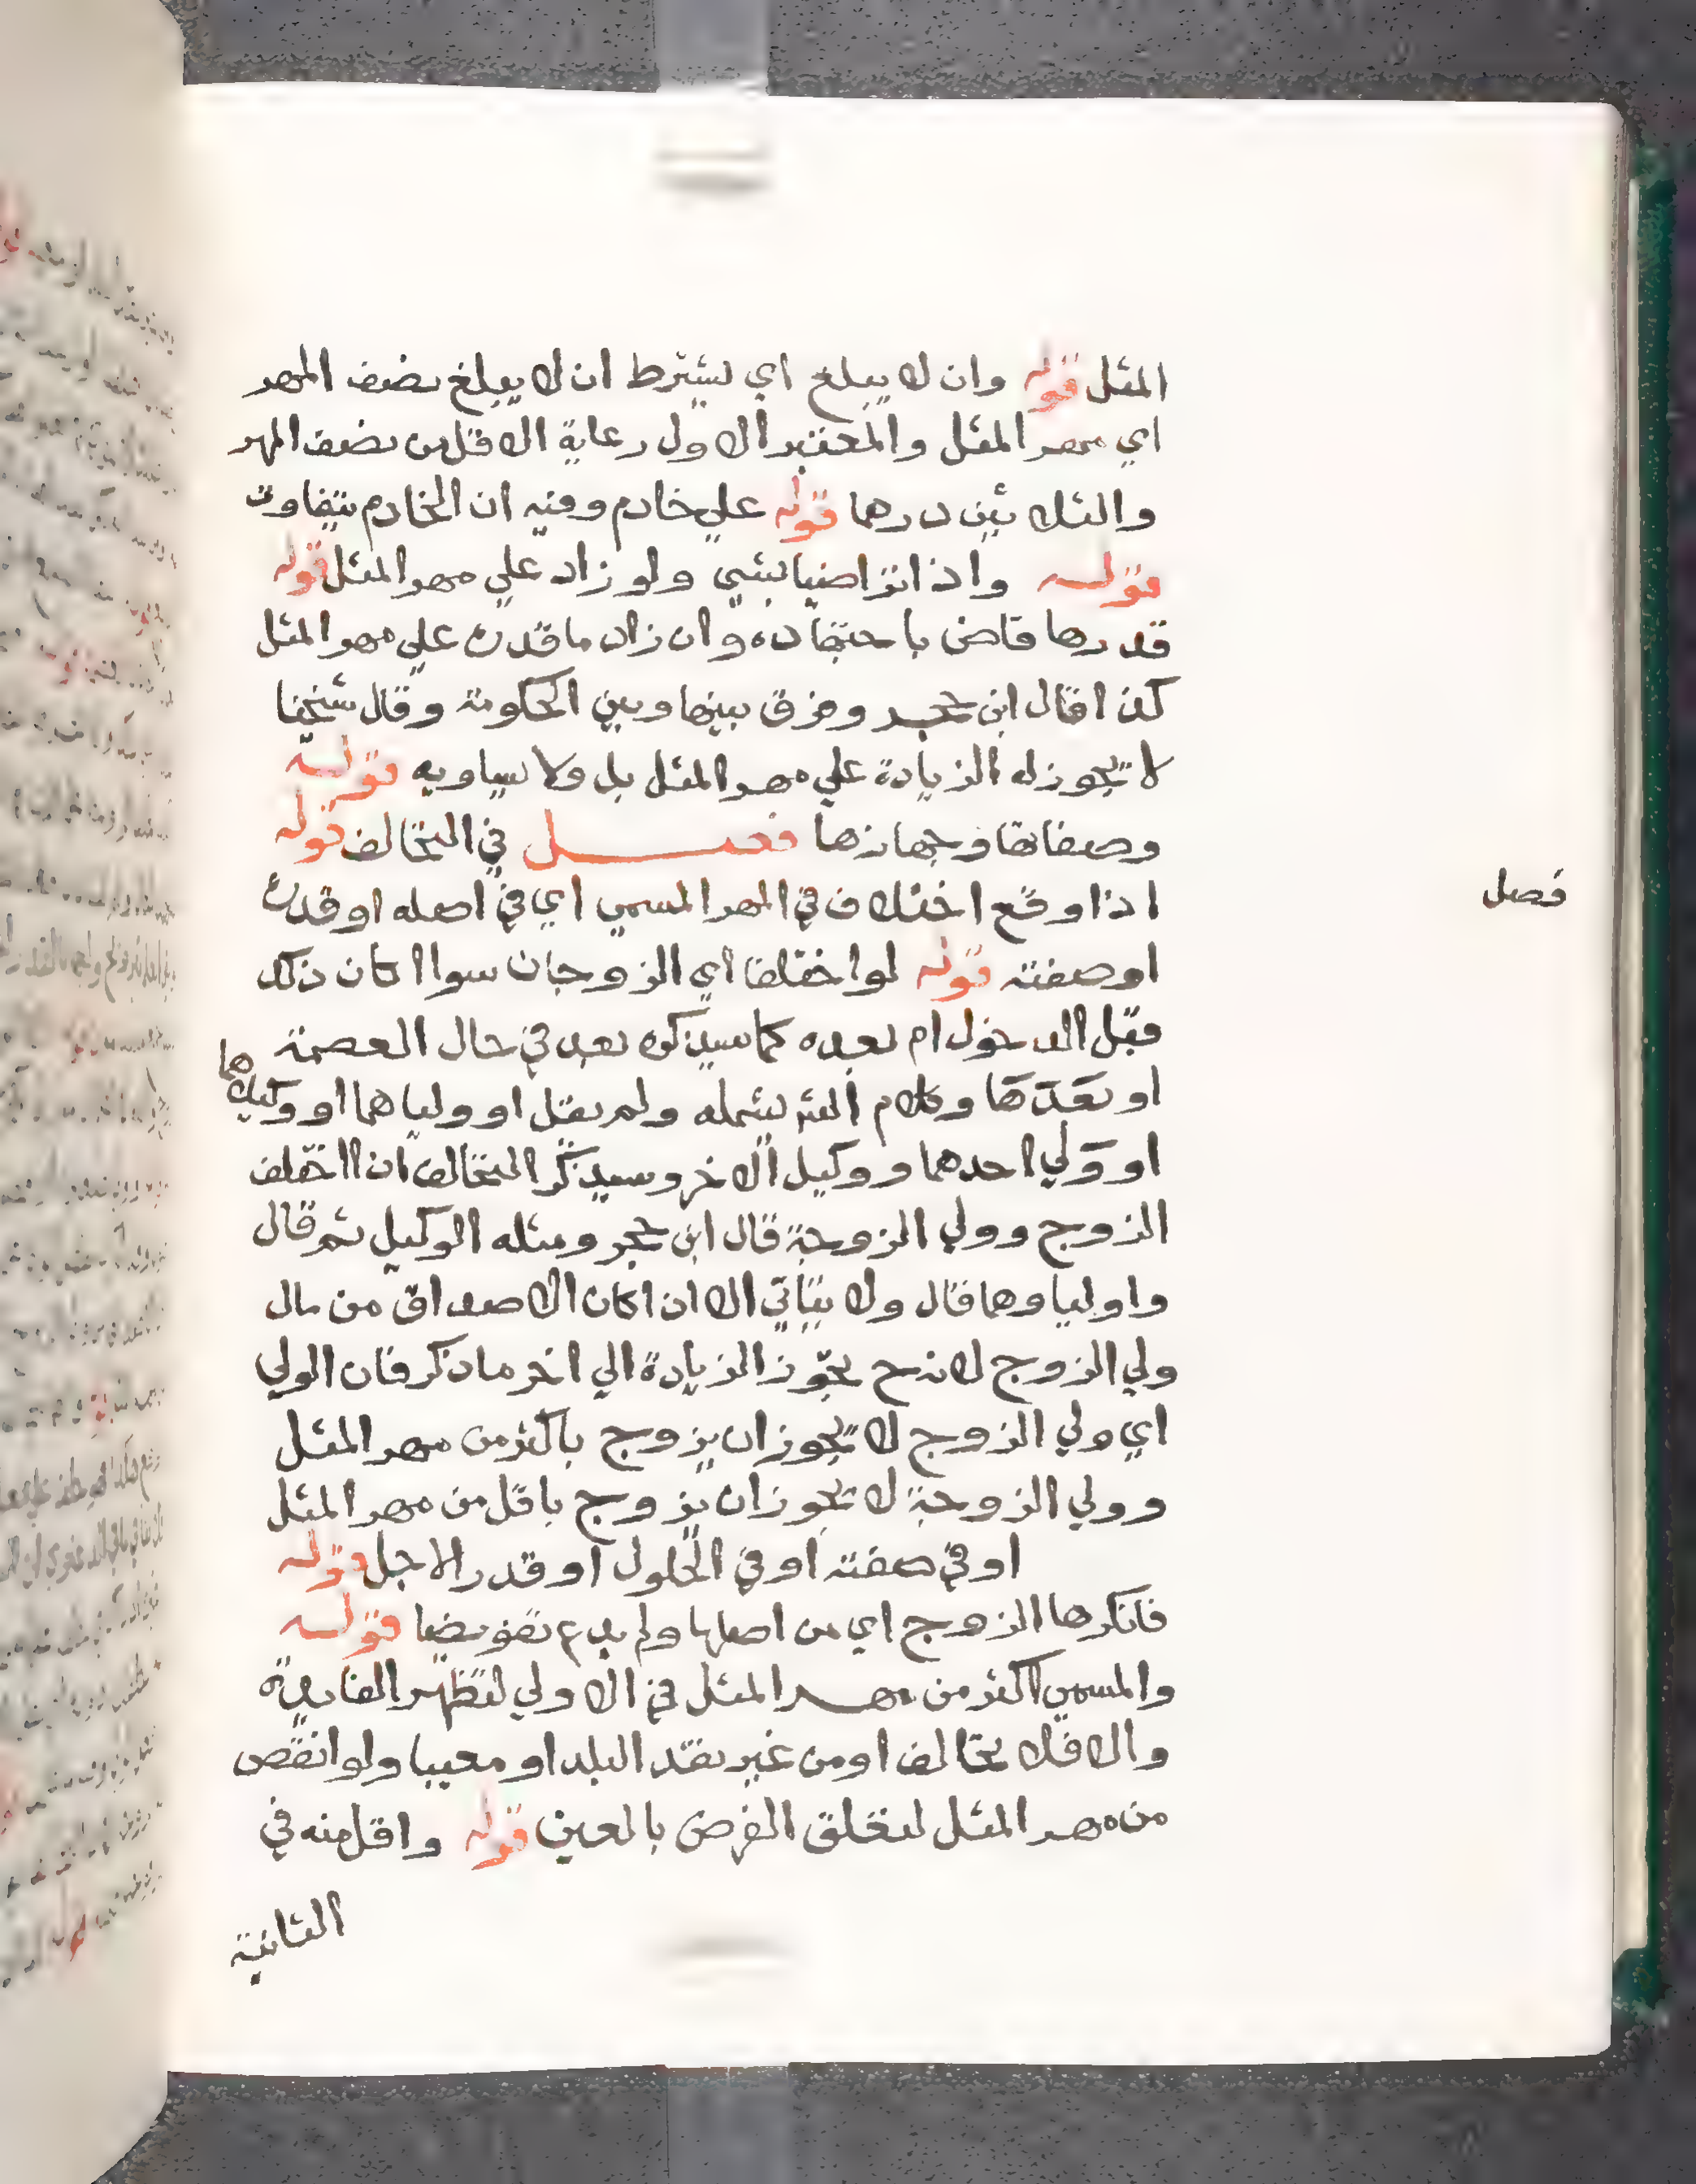 المثل قوله وان لا يبلغ اي يشترط ان لا يبلغ نصف المهر
اي مهر المثل والمعتبر الاول رعاية الاقل من نصف المهر
والثلاثين درهما قوله علي خادم وفيه ان الخادم يتفاوت
قوله واذا تراضيا بشي ولو زاد علي مهر المثل قوله
قدرها قاض باجتهاده وان زاد ما قدره علي مهر المثل
كذا قال ابن حجر وفرق بينها وبين الحكومة وقال شيخنا
لا تجوز له الزيادة علي مهر المثل بل ولا يساويه قوله
وصفاتها وجهازها فصل في التخالف قوله
اذا وقع اختلاف في المهر المسمي اي في اصله او قدره
او صفته قوله لو اختلفا اي الزوجان سوا اكان ذلك
قبل الدخول ام بعده كما سيذكره بعد في حال العصمة
او بعدها وكلام الش يشمله ولم يقل او ولياهما او وكيلاهما
او ولي احدهما ووكيل الاخر وسيذكر التخالف اذا اختلف
الزوج وولي الزوجة قال ابن حجر ومثله الوكيل ثم قال
واوليا وهما قال ولا يتاتي الا اذا كان الاصداق من مال
ولي الزوج لانه ح يجوز الزيادة الي اخر ما ذكر فان الولي
اي ولي الزوج لا يجوز ان يزوج باكثر من مهر المثل
وولي الزوجة لا يجوز ان يزوج باقل من مهر المثل
او في صفته او في الحلول او قدر الاجل قوله
فانكرها الزوج اي من اصلها ولم يدع تفويضا قوله
والمسمي اكثر من مهر المثل في الاولي لتظهر الفايدة
والا فلا تخالف او من غير نقد البلد او معيبا ولو انقص
من مهر المثل لتعلق الغرض بالعين قوله واقل منه في
الثانية
فصل